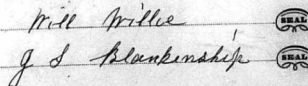 Will Willie SEAL
J S Blankenship SEAL